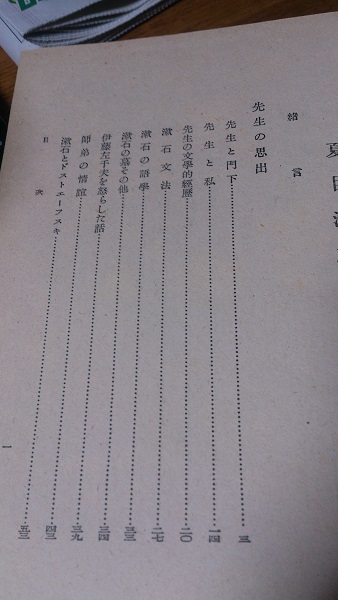 夏目漱
緒言
先生の思出
先生と門下……三
先生と私……一四
先生の文學的經歷……二〇
漱石文法……二七
漱石の語學……三三
漱石の墓その他……三四
伊藤左千夫を怒らした話……三九
師弟の情誼……四三
漱石とドストエーフスキ……五三
目次
一